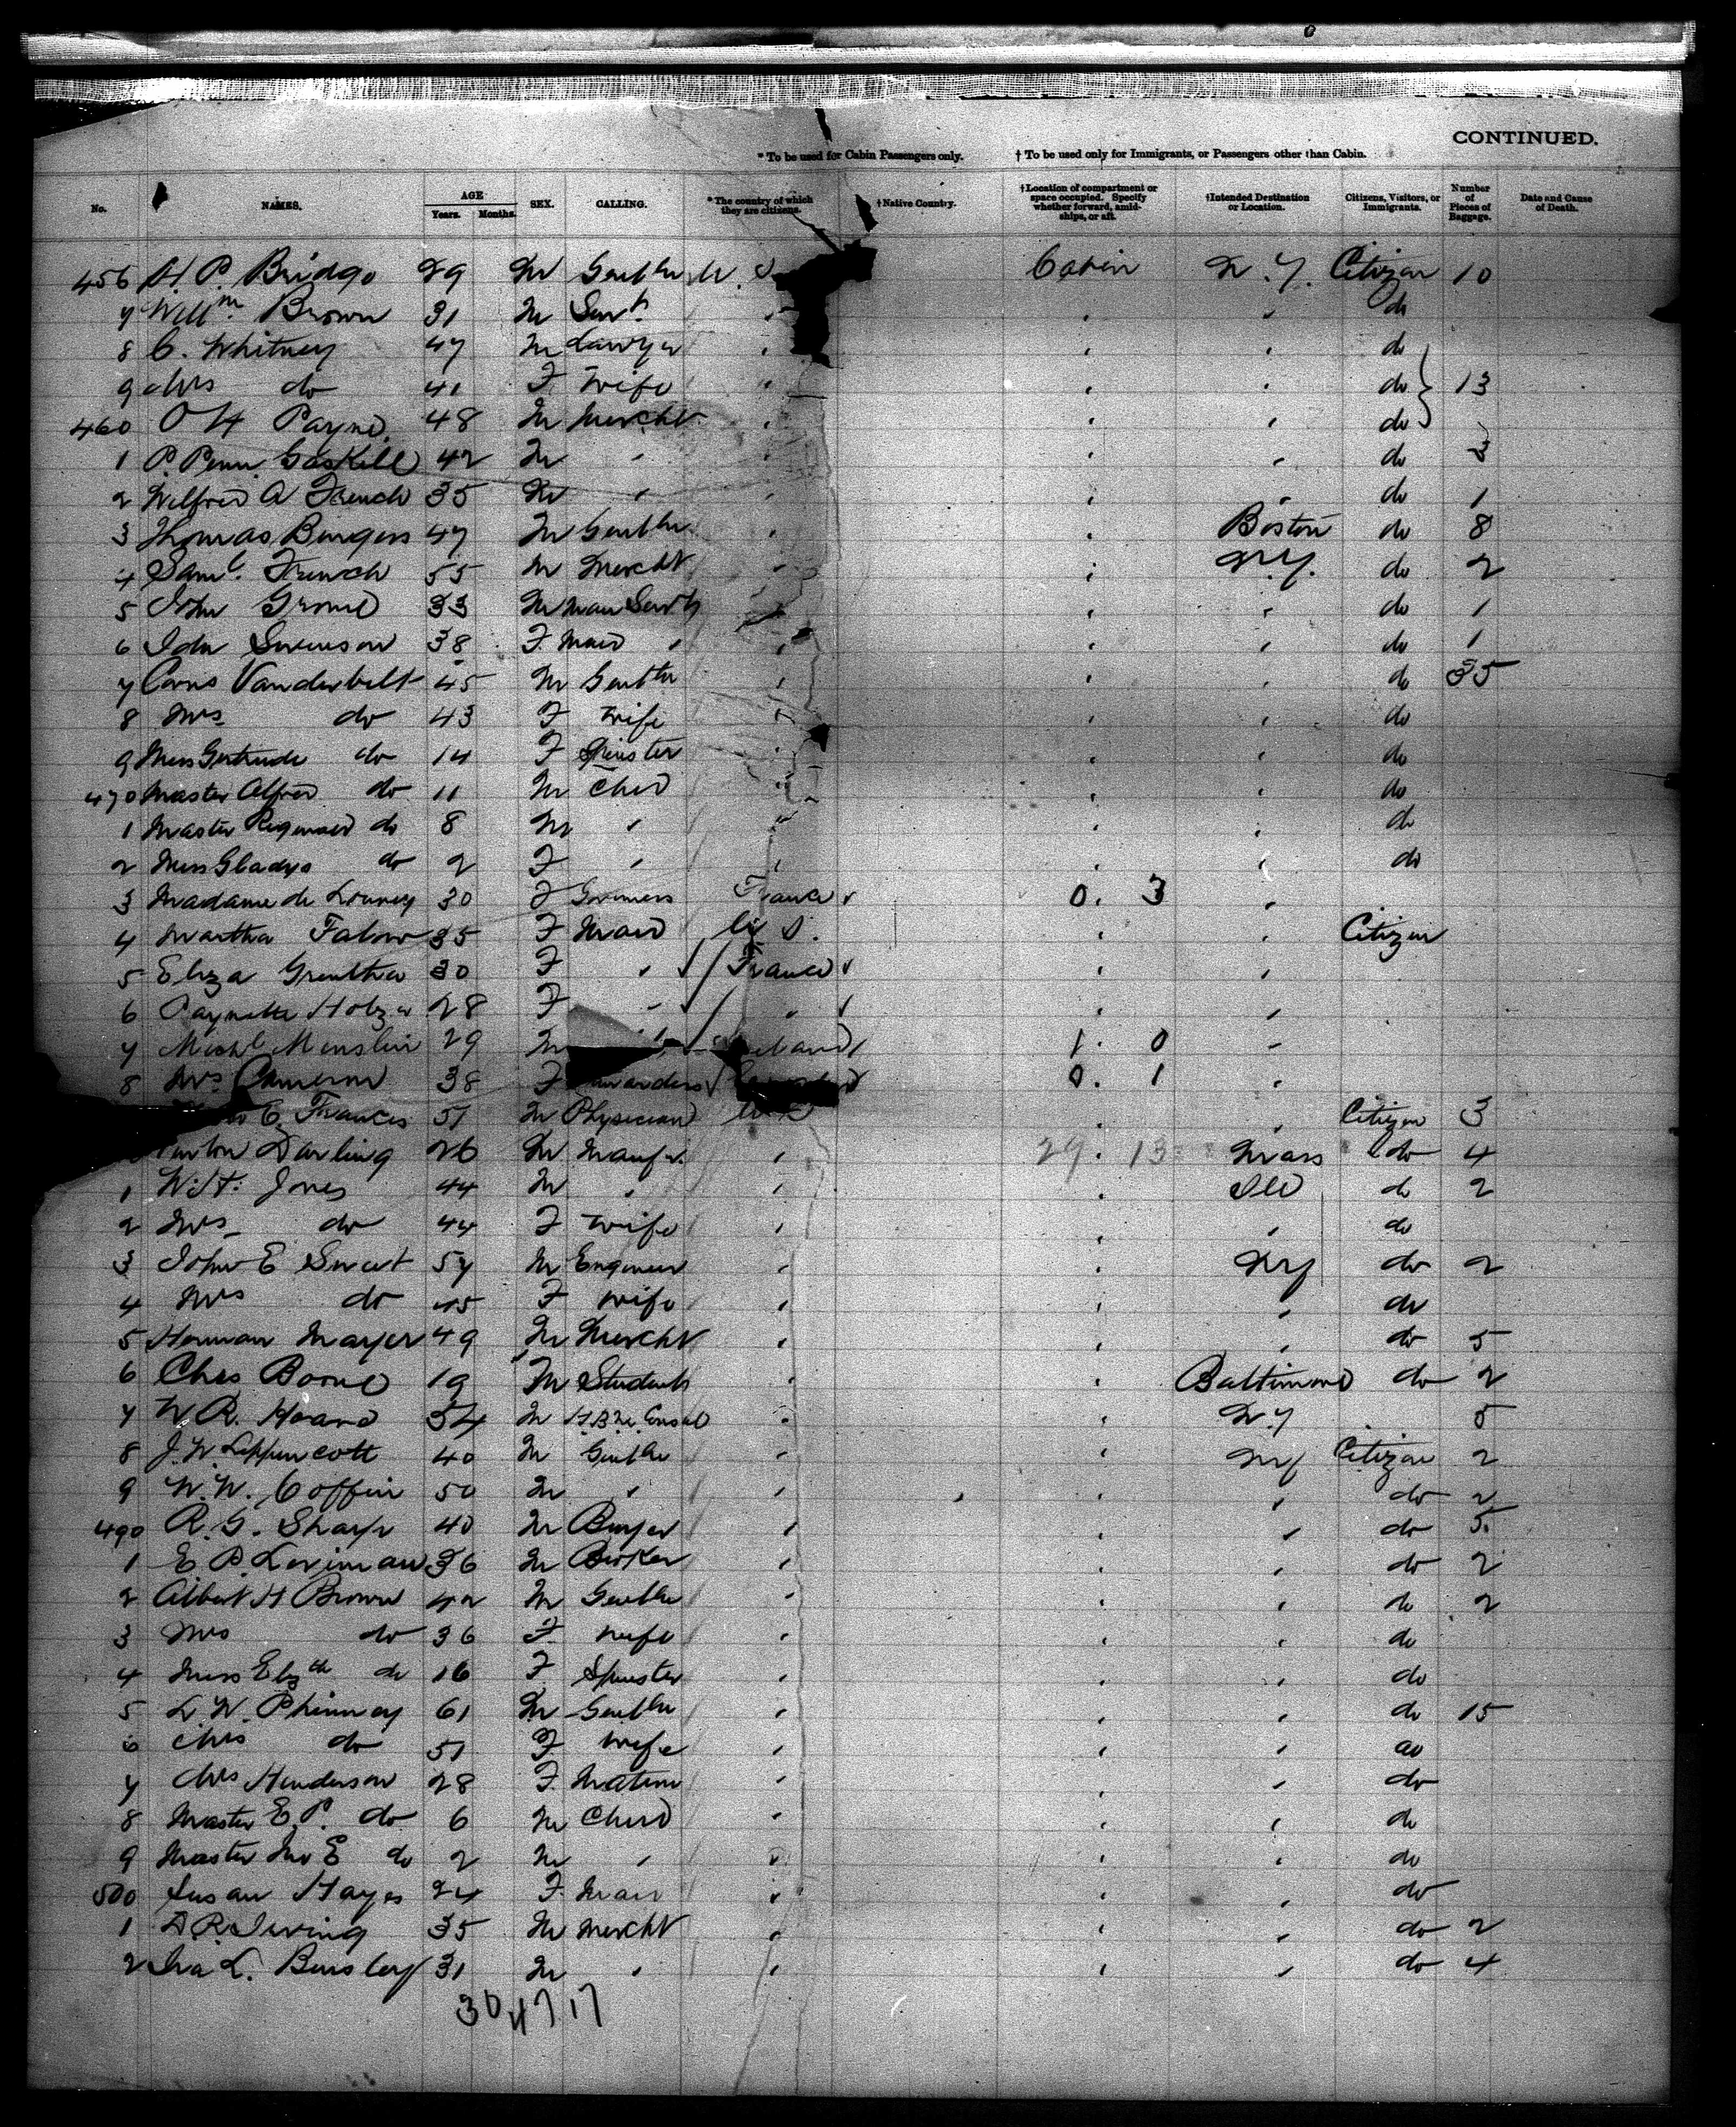 CONTINUED.
* To be used for Cabin Passengers only. † To be used only for Immigrants, or Passengers other than Cabin.
No. NAMES. AGE Years. Months. SEX. CALLING. * The country of which they are citizens. † Native Country. † Location of compartment or space occupied. Specify whether forward, amidships, or aft. † Intended Destination or Location. Citizens, Visitors, or Immigrants. Number of Pieces of Baggage. Date and Cause of Death.
456 H. P. Bridge 29 M Gentln U. S Cabin N. Y. Citizen 10
7 Willm. Brown 31 M Servt. " " " do
8 C. Whitney 47 M Lawyer " " " do
9 Mrs do 41 F Wife " " " do } 13
460 O H Payne 48 M Mercht " " " do
1 P. Penn Gaskell 42 M " " " do 3
2 Wilfred A French 35 M " " " " do 1
3 Thomas Burgess 47 M Gentln " " Boston do 8
4 Saml. French 55 M Mercht " " N.Y. do 2
5 John 33 M Man Servt " " " do 1
6 Ida Swenson 38 F Maid " " " " do 1
7 Corns Vanderbilt 45 M Gentln " " " do 35
8 Mrs do 43 F Wife " " " do
9 Miss Gertrude do 14 F Spinster " " " do
470 Master Alfred do 11 M Child " " " do
1 Master Reginald do 8 M " " " " do
2 Miss Gladys do 2 F " " " " do
3 Madame de 30 F Governess France 0. 3 "
4 Martha 35 F Maid U S. " " Citizen
5 Eliza 30 F " France " "
6 28 F " " " "
7 Michl 29 M 1. 0 "
8 Mrs Cameron 38 F 0. 1 "
E. Frances 51 M Physician U S " " Citizen 3
Darling 26 M Manufr. " 29. 13 Mass do 4
1 W. H. Jones 44 M " " " Ill do 2
2 Mrs do 44 F Wife " " " do
3 John E Sweet 57 M Engineer " " NY do 2
4 Mrs do 45 F Wife " " " do
5 Herman Mayer 49 M Mercht " " " do 5
6 Chas Boone 19 M Student " " Baltimore do 2
7 W R. Hoare 54 M H.B.M. Consul " " N.Y 5
8 J. W. Lippincott 40 M Gentln " " NY Citizen 2
9 W. W. Coffin 50 M " " " " do 2
490 R. G. Sharp 40 M Buyer " " do 5
1 E. P. 36 M Broker " " do 2
2 Albert H Brown 42 M Gentln " " " do 2
3 Mrs do 36 F Wife " " " do
4 Miss Elizth do 16 F Spinster " " " do
5 L. W. Phinney 61 M Gentln " " " do 15
6 Mrs do 51 F Wife " " " do
7 Mrs Henderson 28 F Matron " " do
8 Master E. P. do 6 M Child " " " do
9 Master Jno E do 2 M " " " " do
500 Susan Hayes 24 F Maid " " " do
1 D R Irving 35 M Mercht " " " do 2
2 Ira L. Beasley 31 M " " " " do 4
30 47 17